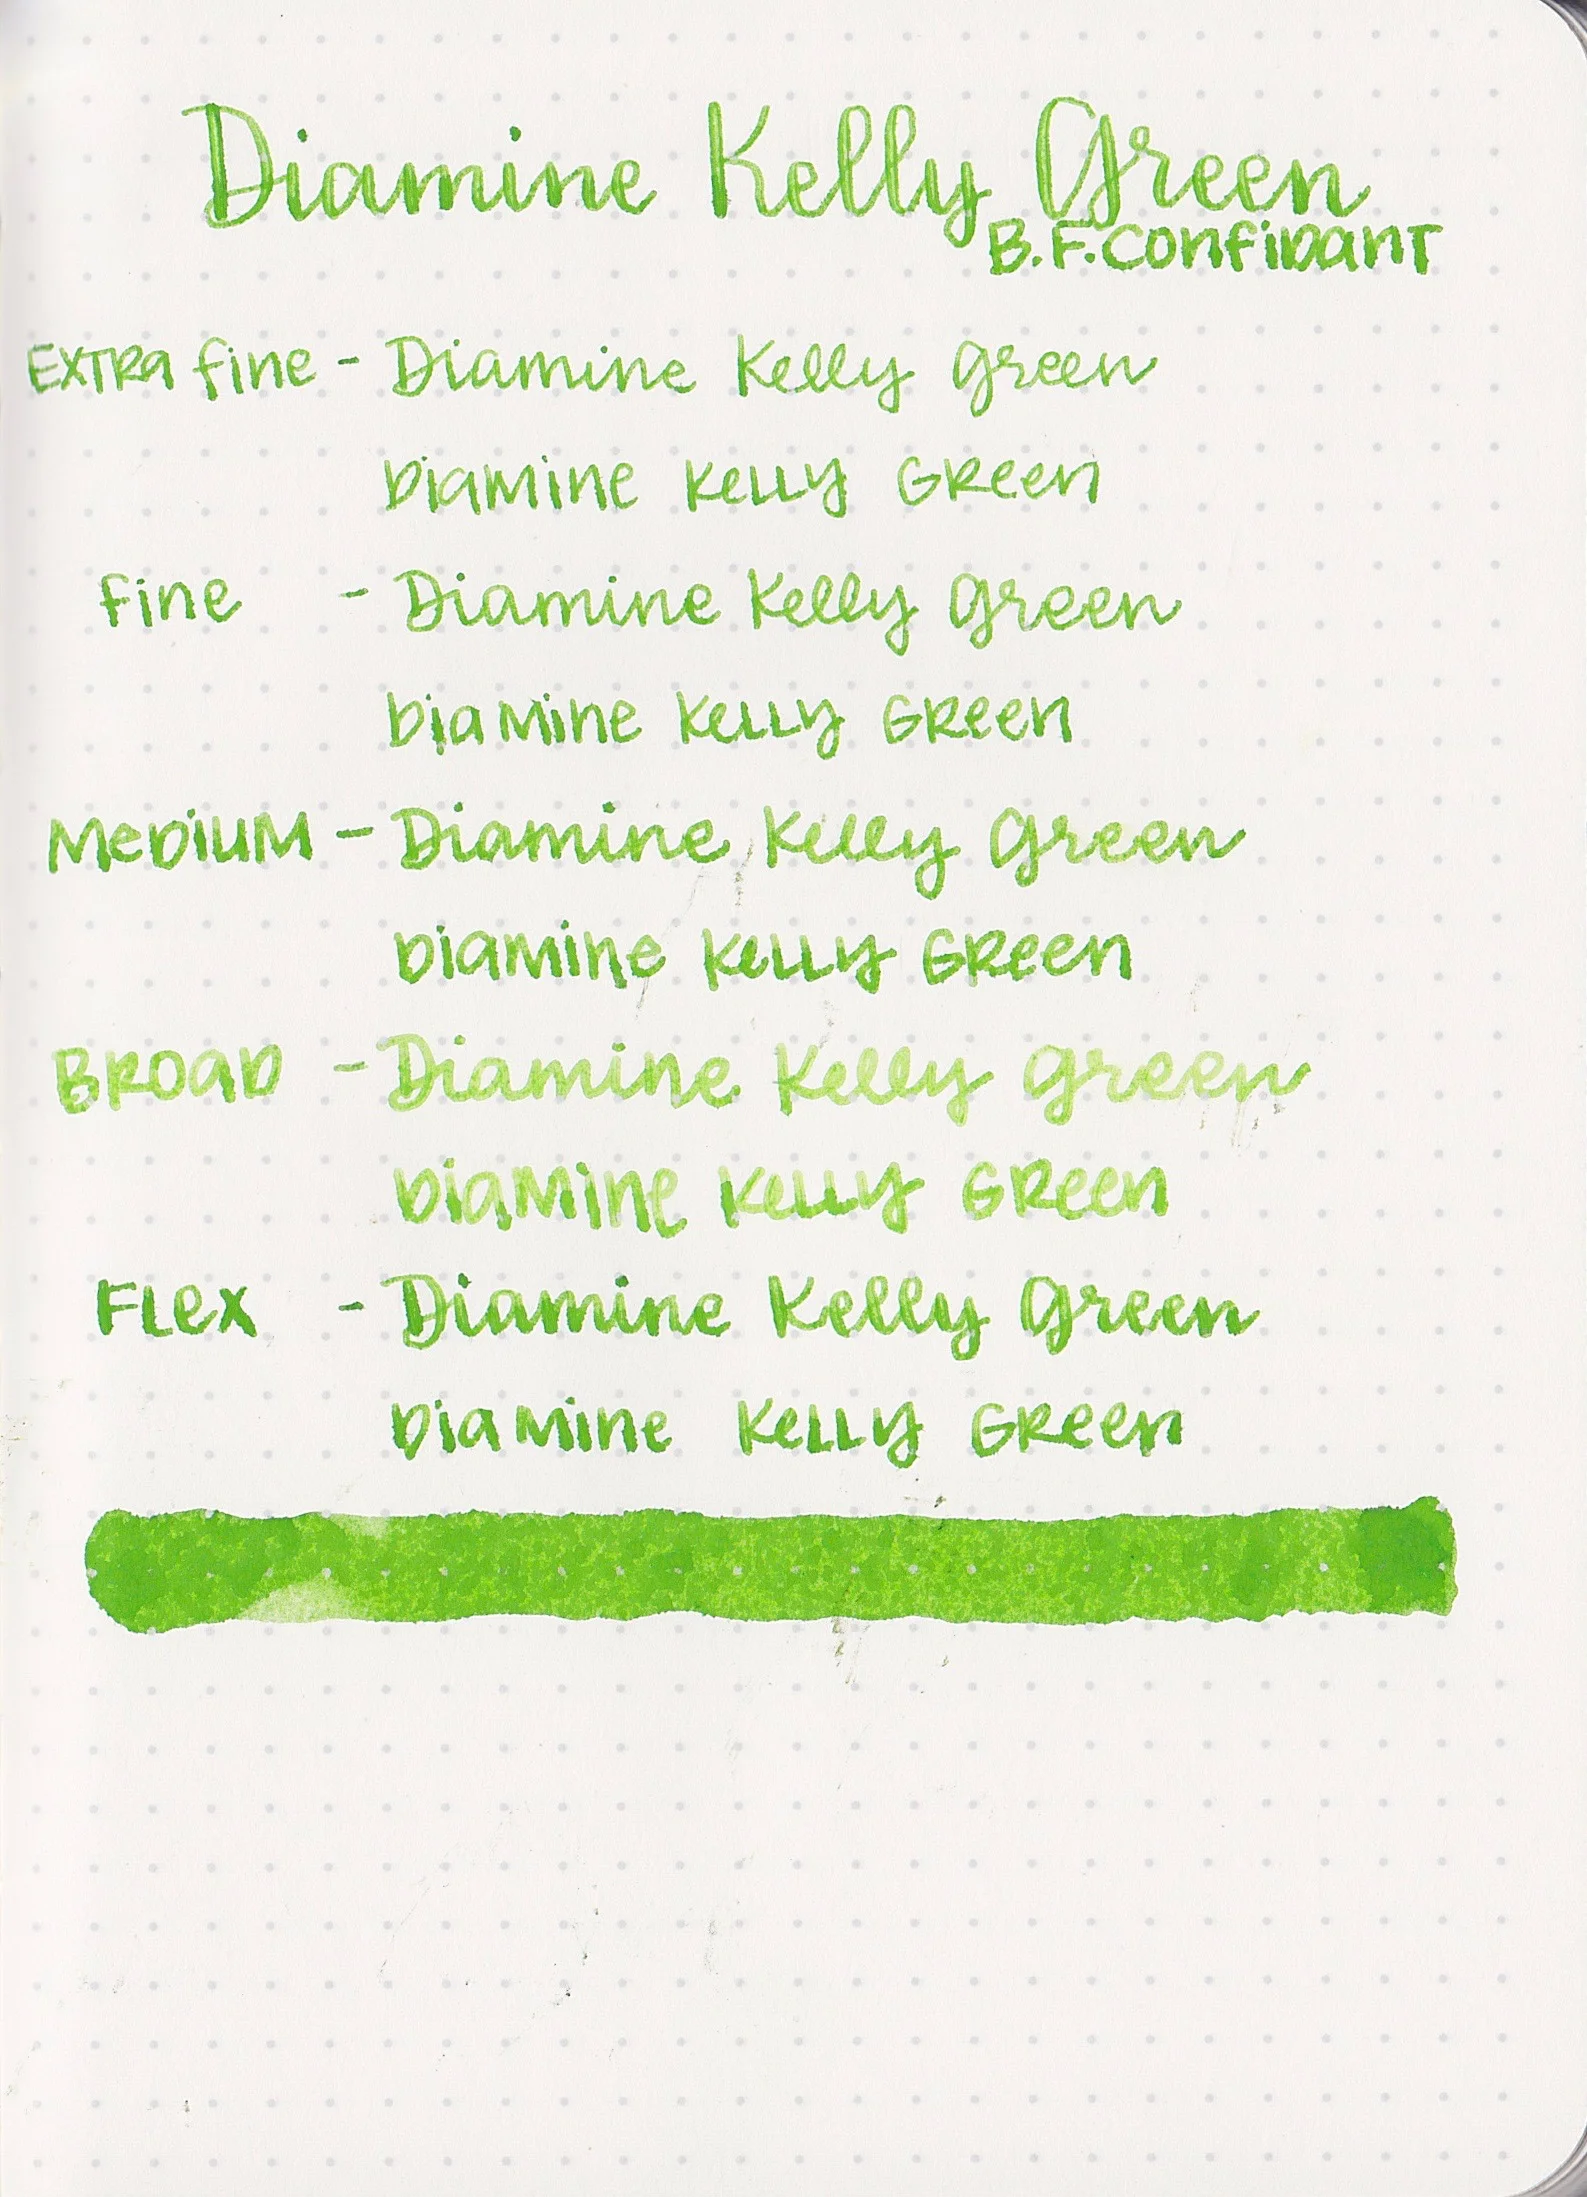 Diamine Kelly Green
B.F. Confidant
Extra fine - Diamine Kelly Green
Diamine Kelly Green
Fine - Diamine Kelly Green
Diamine Kelly Green
Medium - Diamine Kelly Green
Diamine Kelly Green
Broad - Diamine Kelly Green
Diamine Kelly Green
Flex - Diamine Kelly Green
Diamine Kelly Green